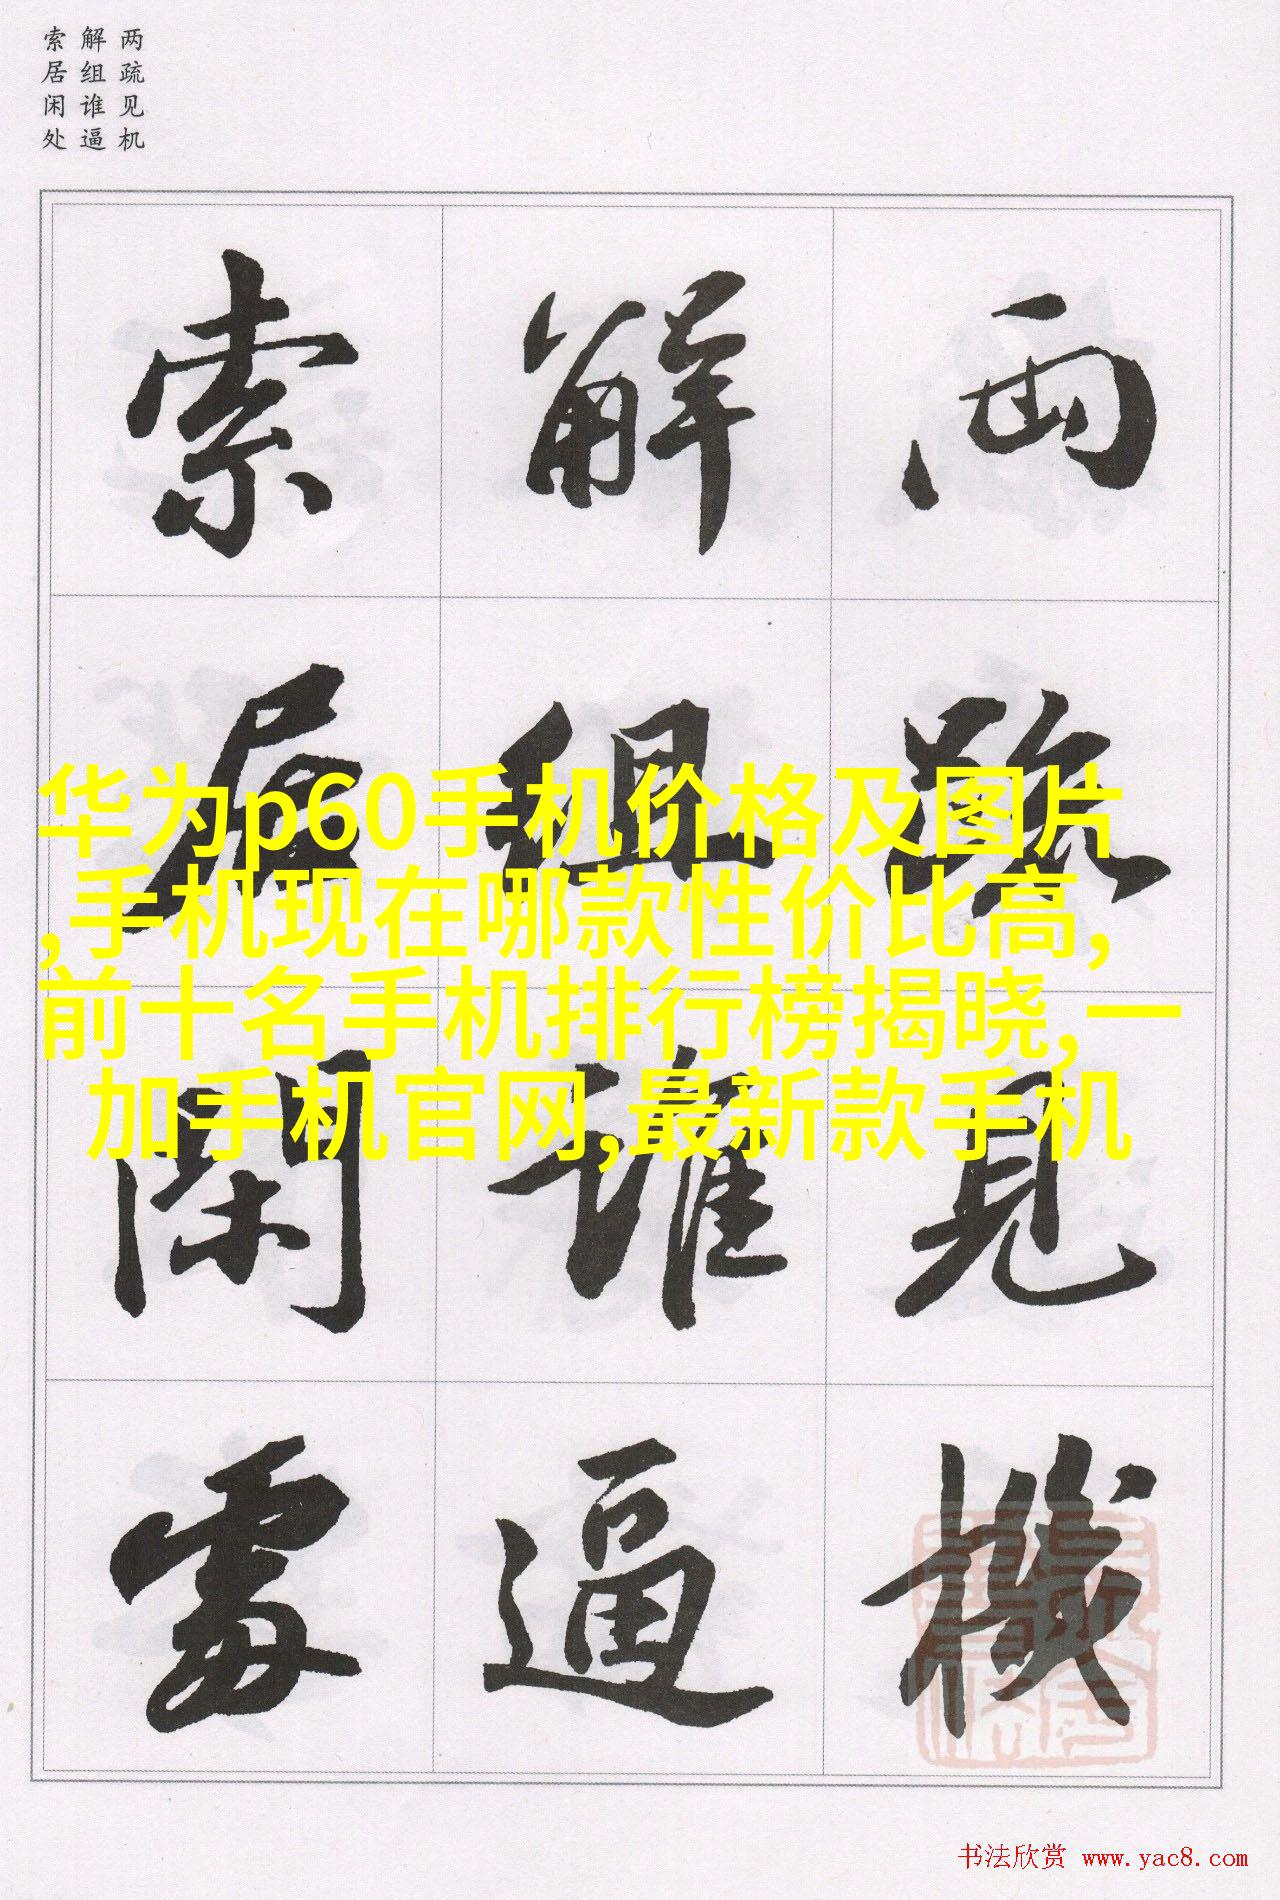 两疏见机
解组谁逼
索居闲处
兩疏見機
解組誰逼
索居閑處
华为p60手机价格及图片
,手机现在哪款性价比高,
前十名手机排行榜揭晓,一
加手机官网,最新款手机
书法欣赏 www.yac8.com